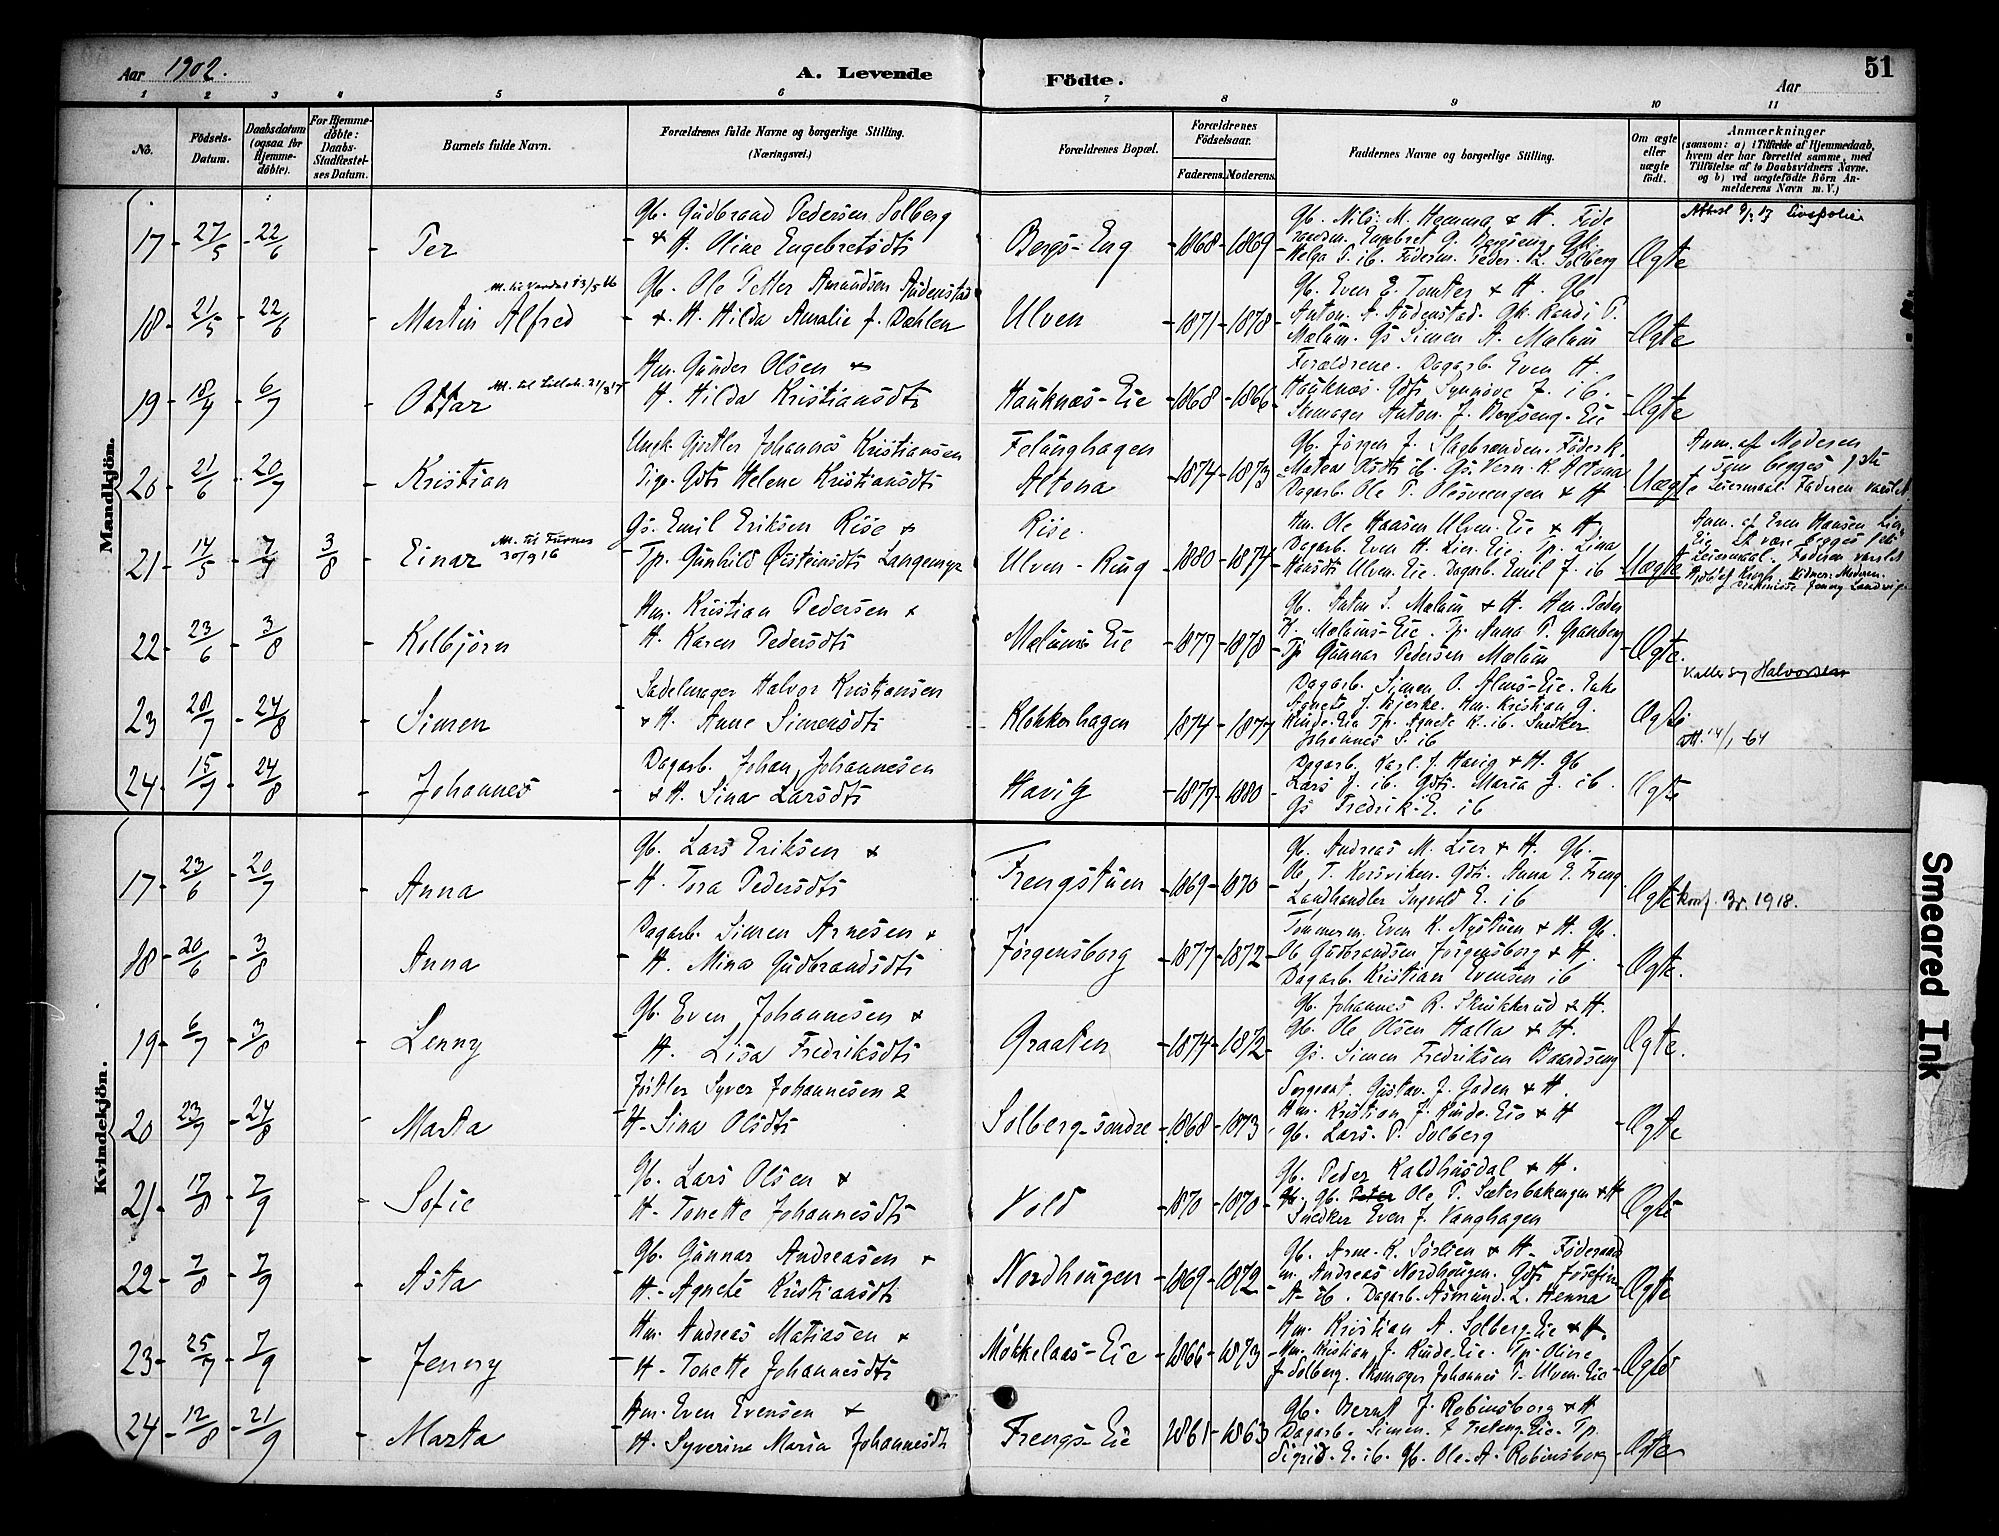 Aar 1902.
A. Levende Födte.
Aar
51
1 2 3 4 5 6 7 8 9 10 11
No.
Födsels-Datum.
Daabsdatum (ogsaa for Hjemmedöbte).
For Hjemmedöbte: Daabs-Stadfæstelses Datum.
Barnets fulde Navn.
Forældrenes fulde Navne og borgerlige Stilling. (Næringsvei.)
Forældrenes Bopæl.
Forældrenes Födselsaar.
Faderens. Moderens.
Faddernes Navne og borgerlige Stilling.
Om ægte eller uægte födt.
Anmærkninger (saasom: a) i Tilfælde af Hjemmedaab, hvem der har forrettet samme, med Tilföielse af to Daabsvidners Navne. og b) ved uægtefödte Börn Anmelderens Navn m. V.)
Mandkjön.
17 27/5 22/6 Per
Gb. Gudbrand Pedersen Solberg
& H. Oline Engebretsdts
Bergs-Eng 1868 1869
Gb. Nils M. Hemma & H. Føde
raadm. Engebret G. Bergseng. Gk.
Helga S. ib. Føderm. Peder L. Solberg
Ægte
18 21/5 22/6 Martin Alfred
Gb. Ole Petter Amundsen Audenstad
& H. Hilda Amalie J. Dæhlen
Ulven 1871 1878
Gb. Even E. Tomter & H. Gb
Anton A. Audenstad. Gk. Randi P.
Mælum. Gs Simen A. Mælum
Ægte
19 18/4 6/7 Ottar
Hm. Gunder Olsen &
H. Hilda Kristiansdts
Hauknæs-Eie 1868 1866
Forældrene. Dagarb. Even H.
Hauknæs. Gdts Synnöve J. ib.
Skomager Anton J. Bergseng-Eie
Ægte
20 21/6 20/7 Kristian
Ungk. Gjørtler Johannes Kristiansen
Pige Gdts Helene Kristiansdts
Felunghagen
Altona 1874 1873
Gb. Jörgen J. Slagbrenden. Föderk.
Matea Olsdts ib. Gs. Vern. K. Altona
Dagarb. Ole P. Olesveengen & H
Uægte
Anm. af Moderen
som begges 1ste
Leiermaal. Faderen varslet
21 14/5 7/7 3/8 Einar
M. til Furnes
30/9 16
Gs. Emil Eriksen Rise &
Tp. Gunhild Østeinsdts Langemyr
Rise.
Ulven-Ring 1880 1874
Hm. Ole Hansen Ulven-Eie & H.
Dagarb. Even H. Lier-Eie. Tp. Lina
Hansdts Ulven-Eie. Dagarb. Emil J. ib
Uægte
Anm. af Even Hansen Lier
Eie at være begges 1ste
Leiermaal. Faderen varslet
22 23/6 3/8 Kolbjörn
Hm. Kristian Pedersen &
H. Karen Pedersdts
Mælums-Eie 1877 1878
Gb. Anton S. Mælum & H. Hm. Peder
K. Mælums-Eie. Tp. Anna P. Granberg
Tp Gunnar Pedersen Mælum
Ægte.
23 20/7 24/8 Simen
Sadelmager Halvor Kristiansen
& H. Anne Simensdts
Klokkerhagen 1874 1877
Dagarb. Simen O. Alms-Eie. Enke
Agnete J. Bjerke. Hm. Kristian G.
Kinde-Eie Tp. Agnete K. ib. Snedker
Johannes S. ib
Ægte
Kaller sig Halvorsen
att. 14/1-64
24 15/7 24/8 Johannes
Dagarb. Johan Johannesen
& H. Sina Larsdts
Havig 1877 1880
Dagarb. Karl J. Havig & H. Gb
Lars J. ib. Gdts. Maria J. ib.
Gs Fredrik E. ib
Ægte
Kvindekjön.
17 23/6 20/7 Anna
Gb. Lars Eriksen &
H. Tora Pedersdts
Frengstuen 1869 1870
Gb. Andreas M. Lier & H. Gb.
Ole T. Korsviken. Gdts. Anna E. Freng
Landhandler Ingvald E. ib
Ægte
konf. Br. 1918.
18 20/6 3/8 Anna
Dagarb. Simen Arnesen &
H. Mina Gudbrandsdts
Jørgensborg 1877 1872
Tømmerm. Even K. Nystuen & H. Gb.
Ole Gudbrandsen Jørgensborg & H.
Dagarb. Kristian Evensen ib
Ægte.
19 6/7 3/8 Lenny
Gb. Even Johannesen &
H. Lisa Fredriksdts
Graaten 1874 1872
Gb. Johannes R. Skukkerud & H.
Gb. Ole Olsen Halla & H.
Gs. Simen Fredriksen Baardseng
Ægte.
20 23/7 24/8 Marta
Gjørtler Syver Johannesen &
H. Sina Olsdts
Solberg-søndre 1868 1873
Sergeant Gustav J. Goden & H.
Hm. Kristian J. Kinde-Eie & H
Gb. Lars P. Solberg
Ægte
21 17/8 7/9 Sofie
Gb. Lars Olsen &
H. Tonette Johannesdts
Vold 1870 1870
Gb. Peder Kaldhusdal & H.
Gb. Ole P. Sæterbakengen & H
Snedker Even J. Vanghagen
Ægte
22 7/8 7/9 Asta
Gb. Gunnar Andreasen &
H. Agnete Kristiansdts
Nordhougen 1869 1872
Gb. Arne K. Sörlien & H. Föderaad
m. Andreas Nordhougen. Gdts Josefine
A. ib. Dagarb. Asmund L. Henna
Ægte
23 25/7 7/9 Jenny
Hm. Andreas Matiasen &
H. Tonette Johannesdts
Møkkelaas-Eie 1866 1873
Hm. Kristian A. Solberg-Eie & H.
Hm. Kristian J. Kinde-Eie. Tp. Oline
J. Solberg. Skomager Johannes P. Ulven-Eie
Ægte
24 12/8 21/9 Marta
Hm. Even Evensen &
H. Syverine Maria Johannesdts
Frengs-Eie 1861 1863
Gb. Bernt J. Robinsborg & H
Dagarb. Simen J. Freng-Eie. Tp.
Sigrid E. ib. Gb. Ole A. Robinsborg
Ægte
Smeared Ink